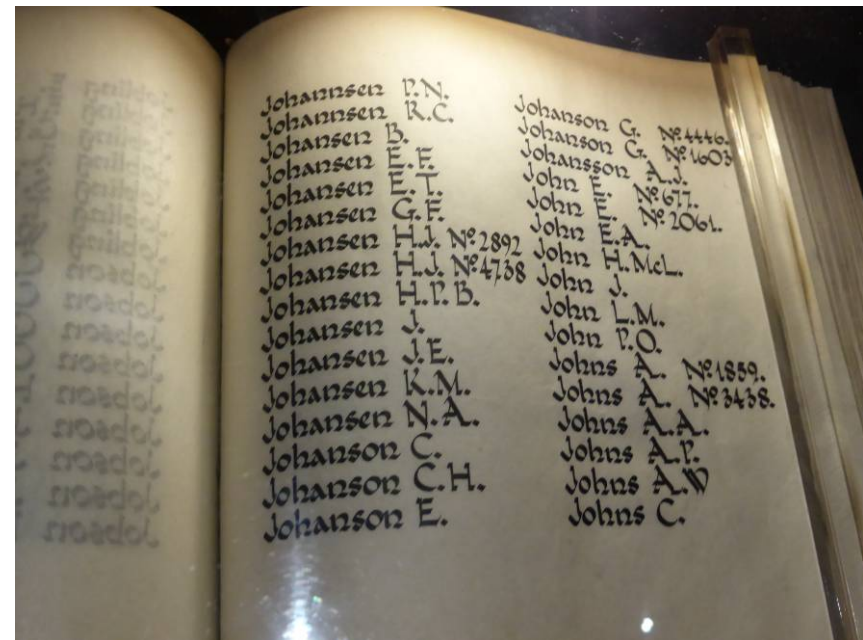 Johannsen P.N.
Johannsen R.C.
Johansen B.
Johansen E.F.
Johansen E.T.
Johansen G.F.
Johansen H.J. Nº 2892
Johansen H.J. Nº 4738
Johansen H.P.B.
Johansen J.
Johansen J.E.
Johansen K.M.
Johansen N.A.
Johanson C.
Johanson C.H.
Johanson E.
Johanson G. Nº 4446.
Johanson G. Nº 1603
Johansson A.J.
John E. Nº 677.
John E. Nº 2061.
John E.A.
John H.McL.
John J.
John L.M.
John P.O.
Johns A. Nº 1859.
Johns A. Nº 3438.
Johns A.A.
Johns A.P.
Johns A.W
Johns C.